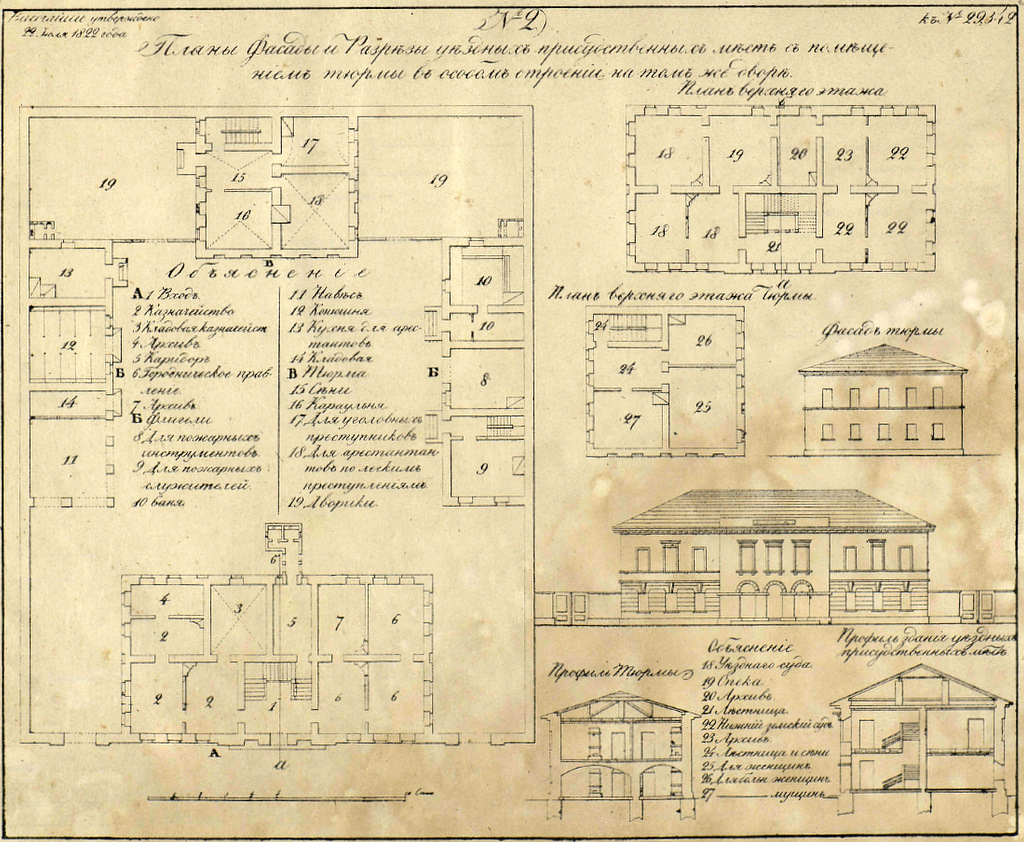 Высочайше утверждено
22 Іюля 1822 года
№ 2)
къ № 22342
Планы Фасады и Разрѣзы уѣздныхъ присудственныхъ мѣстъ съ помѣще-
ніемъ тюрмы въ особомъ строеніи на томъ же дворѣ.
Планъ верхняго этажа
19
15
16
17
18
19
В
18
19
20
23
22
18
18
21
22
22
а
Объясненіе
А 1 Входъ
2 Казначейство
3 Кладовая казначейст
4 Архивъ
5 Каридоръ
6 Городническое прав-
леніе
7 Архивъ
Б Флигели
8 Для пожарныхъ
инструментовъ
9 Для пожарныхъ
служителей
10 баня
11 Навѣсъ
12 Конюшня
13 Кухня для арес-
тантовъ
14 Кладовая
В Тюрма
15 Сѣни
16 Караульня
17 Для уголовныхъ
преступниковъ
18 Для арестантан-
товъ по легкимъ
преступленіямъ
19 Дворики
13
12
14
11
Б
Б
10
10
8
9
Планъ верхняго этажа Тюрмы
24
26
24
25
27
Фасадъ тюрмы
6
4
3
5
7
6
2
2
2
1
6
6
А
а
Профиль Тюрмы
Объясненіе
18 Уѣзднаго суда
19 Опека
20 Архивъ
21 Лѣстница
22 Нижній земскій судъ
23 Архивъ
24 Лѣстница и сѣни
25 Для женщинъ
26 Для больн женщинъ
27 мущинъ
Профиль зданія уѣздныхъ
присудственныхъ мѣстъ